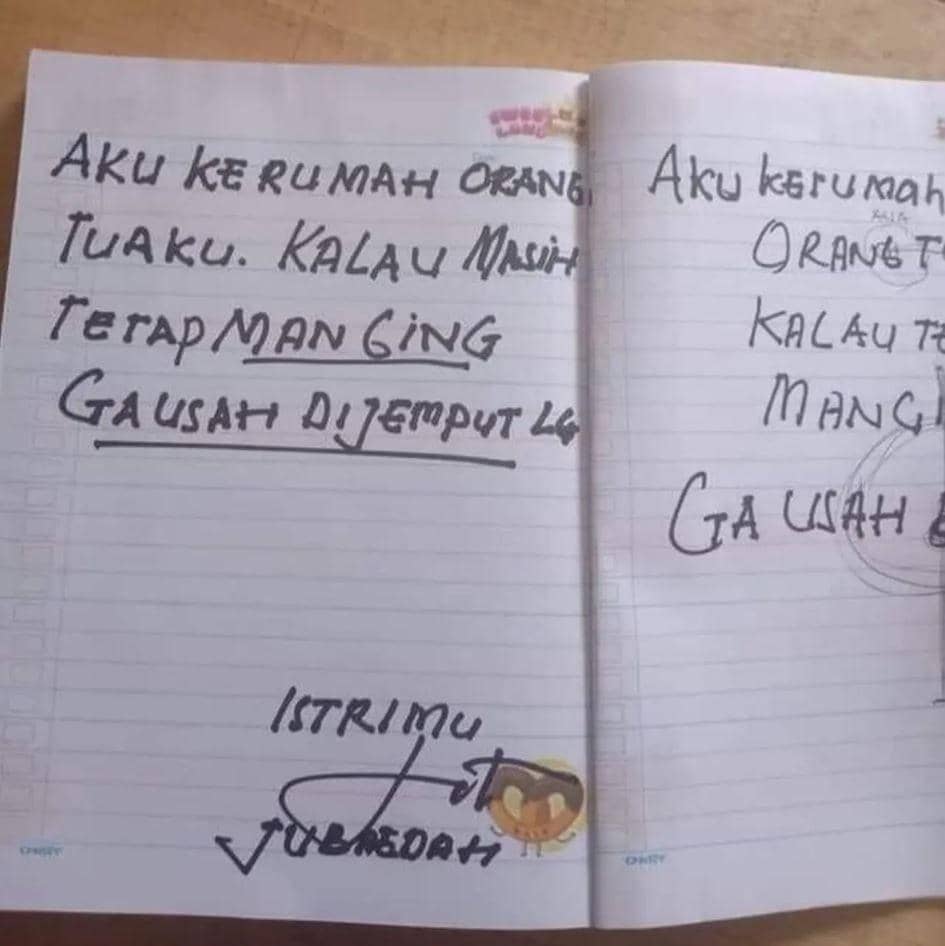 AKU KERUMAH ORANG
TUAKU. KALAU MASIH
TETAP MANGING
GAUSAH DIJEMPUT LG
ISTRIMU
JUBAEDAH
Aku kerumah
ORANG T
KALAU TE
MANGI
GAUSAH